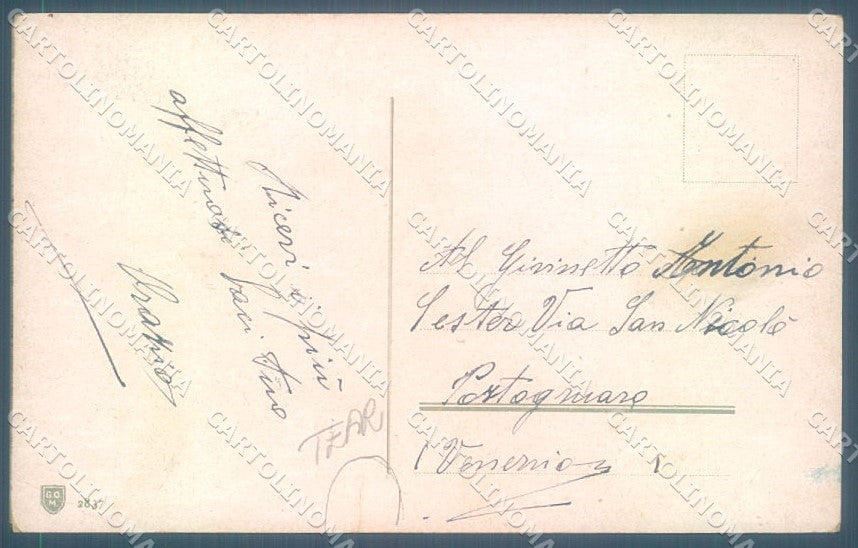 Ricevi i più
affettuosi baci tuo
Orazio
TEAR
Al Giovinetto Antonio
Sestero Via San Nicolò
Portogruaro
(Venezia)
G.O.M.
2837
CARTOLINOMANIA